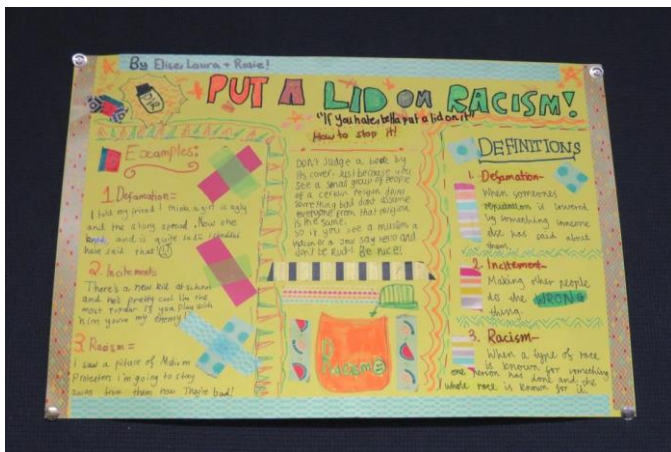 By Elise, Laura + Rosie!
PUT A LID ON RACISM!
"If you hate, betta put a lid on it"
How to stop it!
Examples:
1. Defamation=
I told my friend I think a girl is ugly
and the story spread. Now she
knows and is quite sad. I
have said that
2. Incitement=
There's a new kid at school
and he's pretty cool like the
most popular if you play with
him you're my enemy
3. Racism=
I saw a picture of Muslim
Protesters I'm going to stay
away from them now They're bad!
Don't Judge a book by
its cover. Just because you
see a small group of people
of a certain religion doing
something bad dont assume
everyone from that religion
is the same.
So if you see a muslim a
or a Jew say hello and
don't be Rude! Be nice!
Racism
DEFINITIONS
1. Defamation-
When someones
reputation is lowered
by something someone
else has said about
them.
2. Incitement-
Making other people
do the WRONG
thing.
3. Racism-
When a type of race
is known for something
one person has done and the
whole race is known for it.